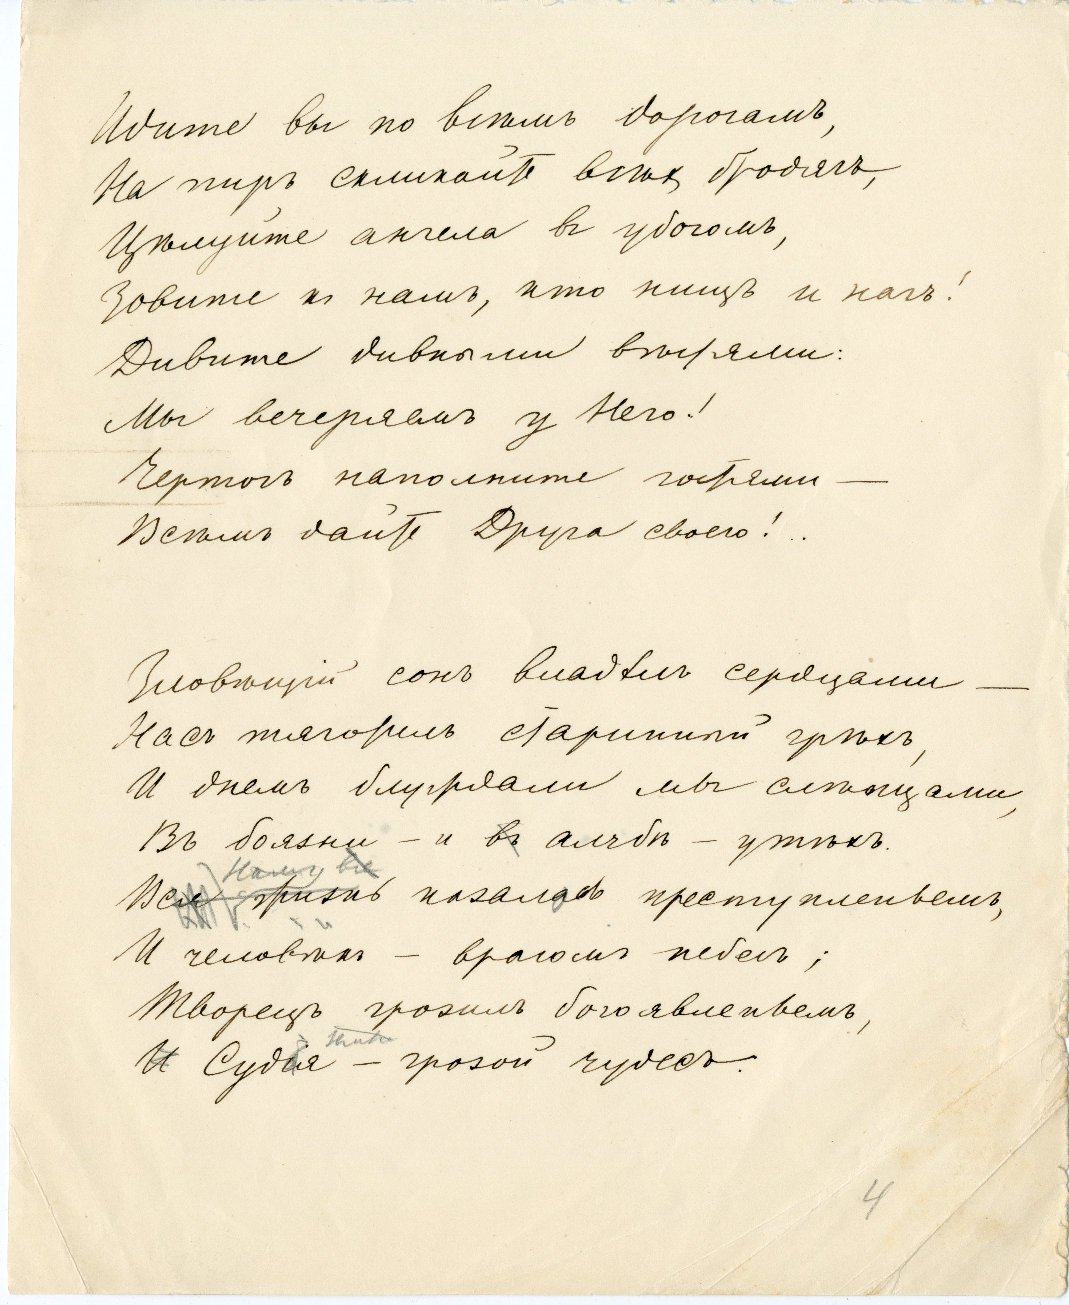 Идите вы по всѣмъ дорогамъ,
На пиръ скликайте всѣхъ бродягъ,
Цѣлуйте ангела въ убогомъ,
Зовите къ намъ, кто нищъ и нагъ!
Дивите дивными вѣстями:
Мы вечеряемъ у Него!
Чертогъ наполните гостями —
Всѣмъ дайте Друга своего!..
Зловѣщій сонъ владѣлъ сердцами —
Насъ тяготилъ старинный грѣхъ,
И днемъ блуждали мы слѣпцами,
Въ боязни — и въ алчбѣ — утѣхъ.
Нашу
Вся жизнь казалась преступленьемъ,
И человѣкъ — врагомъ небесъ;
Творецъ грозилъ богоявленьемъ,
И Судія — грозой чудесъ.
4